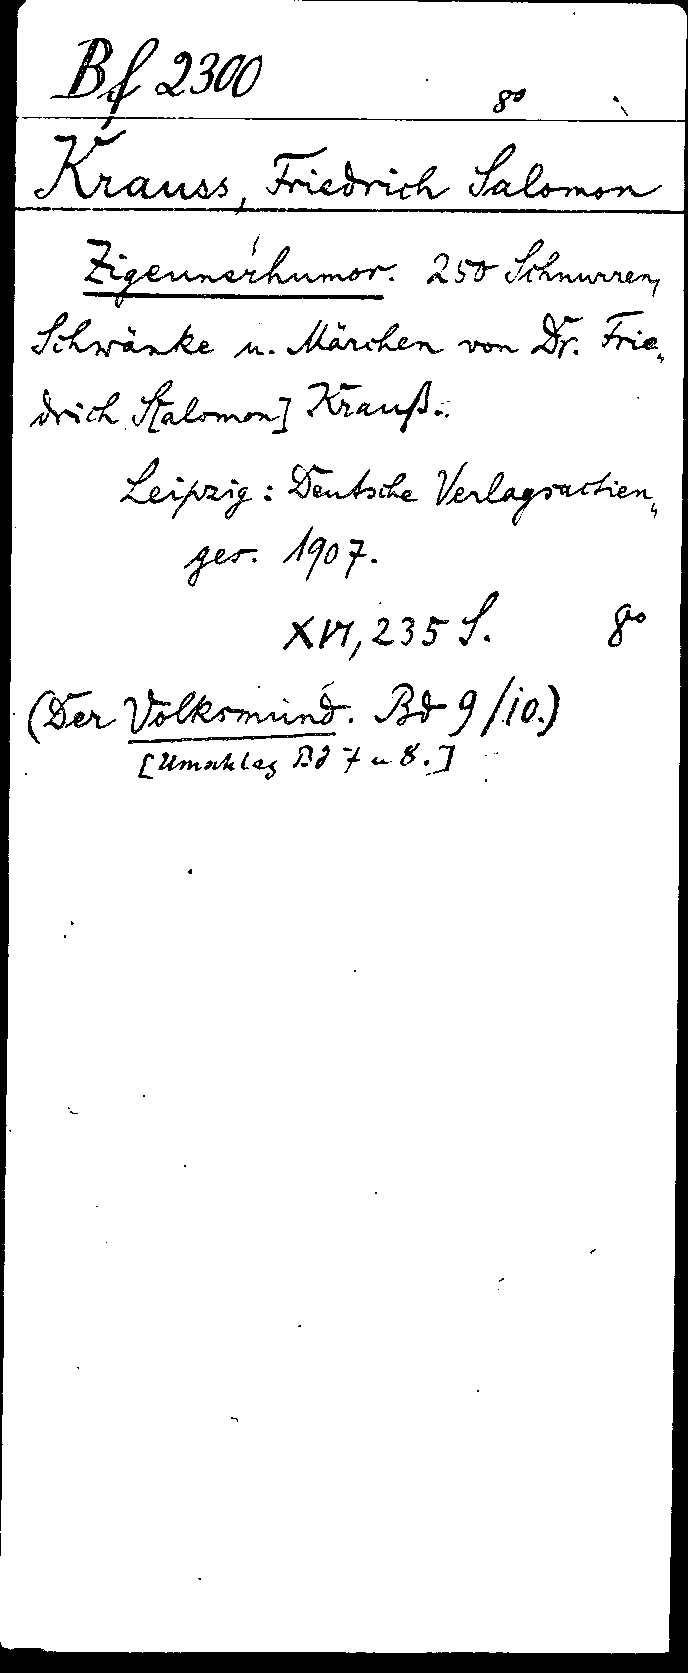 Bf 2300
8°
Krauss, Friedrich Salomon
Zigeunerhumor. 250 Schnurren,
Schwänke u. Märchen von Dr. Frie„
drich S[alomon] Krauß.
Leipzig: Deutsche Verlagsactien„
ges. 1907.
XVI, 235 S. 8°
(Der Volksmund. Bd 9/10.)
[Umschlag Bd 7 u 8.]